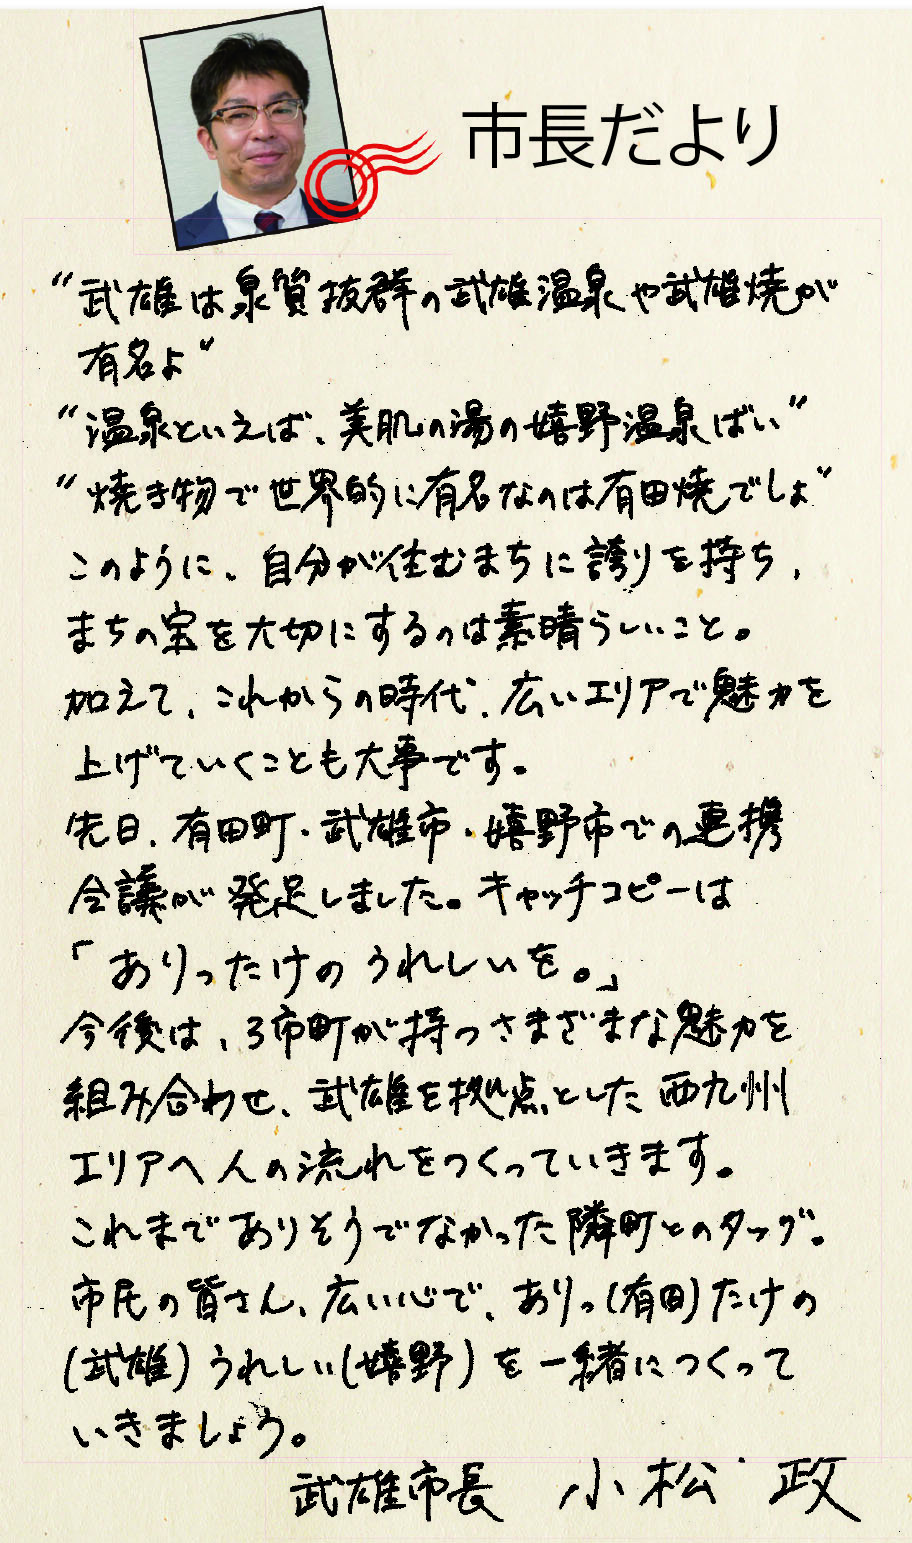 市長だより
“武雄は泉質抜群の武雄温泉や武雄焼が
有名よ”
“温泉といえば、美肌の湯の嬉野温泉ばい”
“焼き物で世界的に有名なのは有田焼でしょ”
このように、自分が住むまちに誇りを持ち、
まちの宝を大切にするのは素晴らしいこと。
加えて、これからの時代、広いエリアで魅力を
上げていくことも大事です。
先日、有田町・武雄市・嬉野市での連携
会議が発足しました。キャッチコピーは
「ありったけのうれしいを。」
今後は、3市町が持つさまざまな魅力を
組み合わせ、武雄を拠点とした西九州
エリアへ人の流れをつくっていきます。
これまでありそうでなかった隣町とのタッグ。
市民の皆さん、広い心で、ありっ(有田)たけの
(武雄)うれしい(嬉野)を一緒につくって
いきましょう。
武雄市長 小松 政